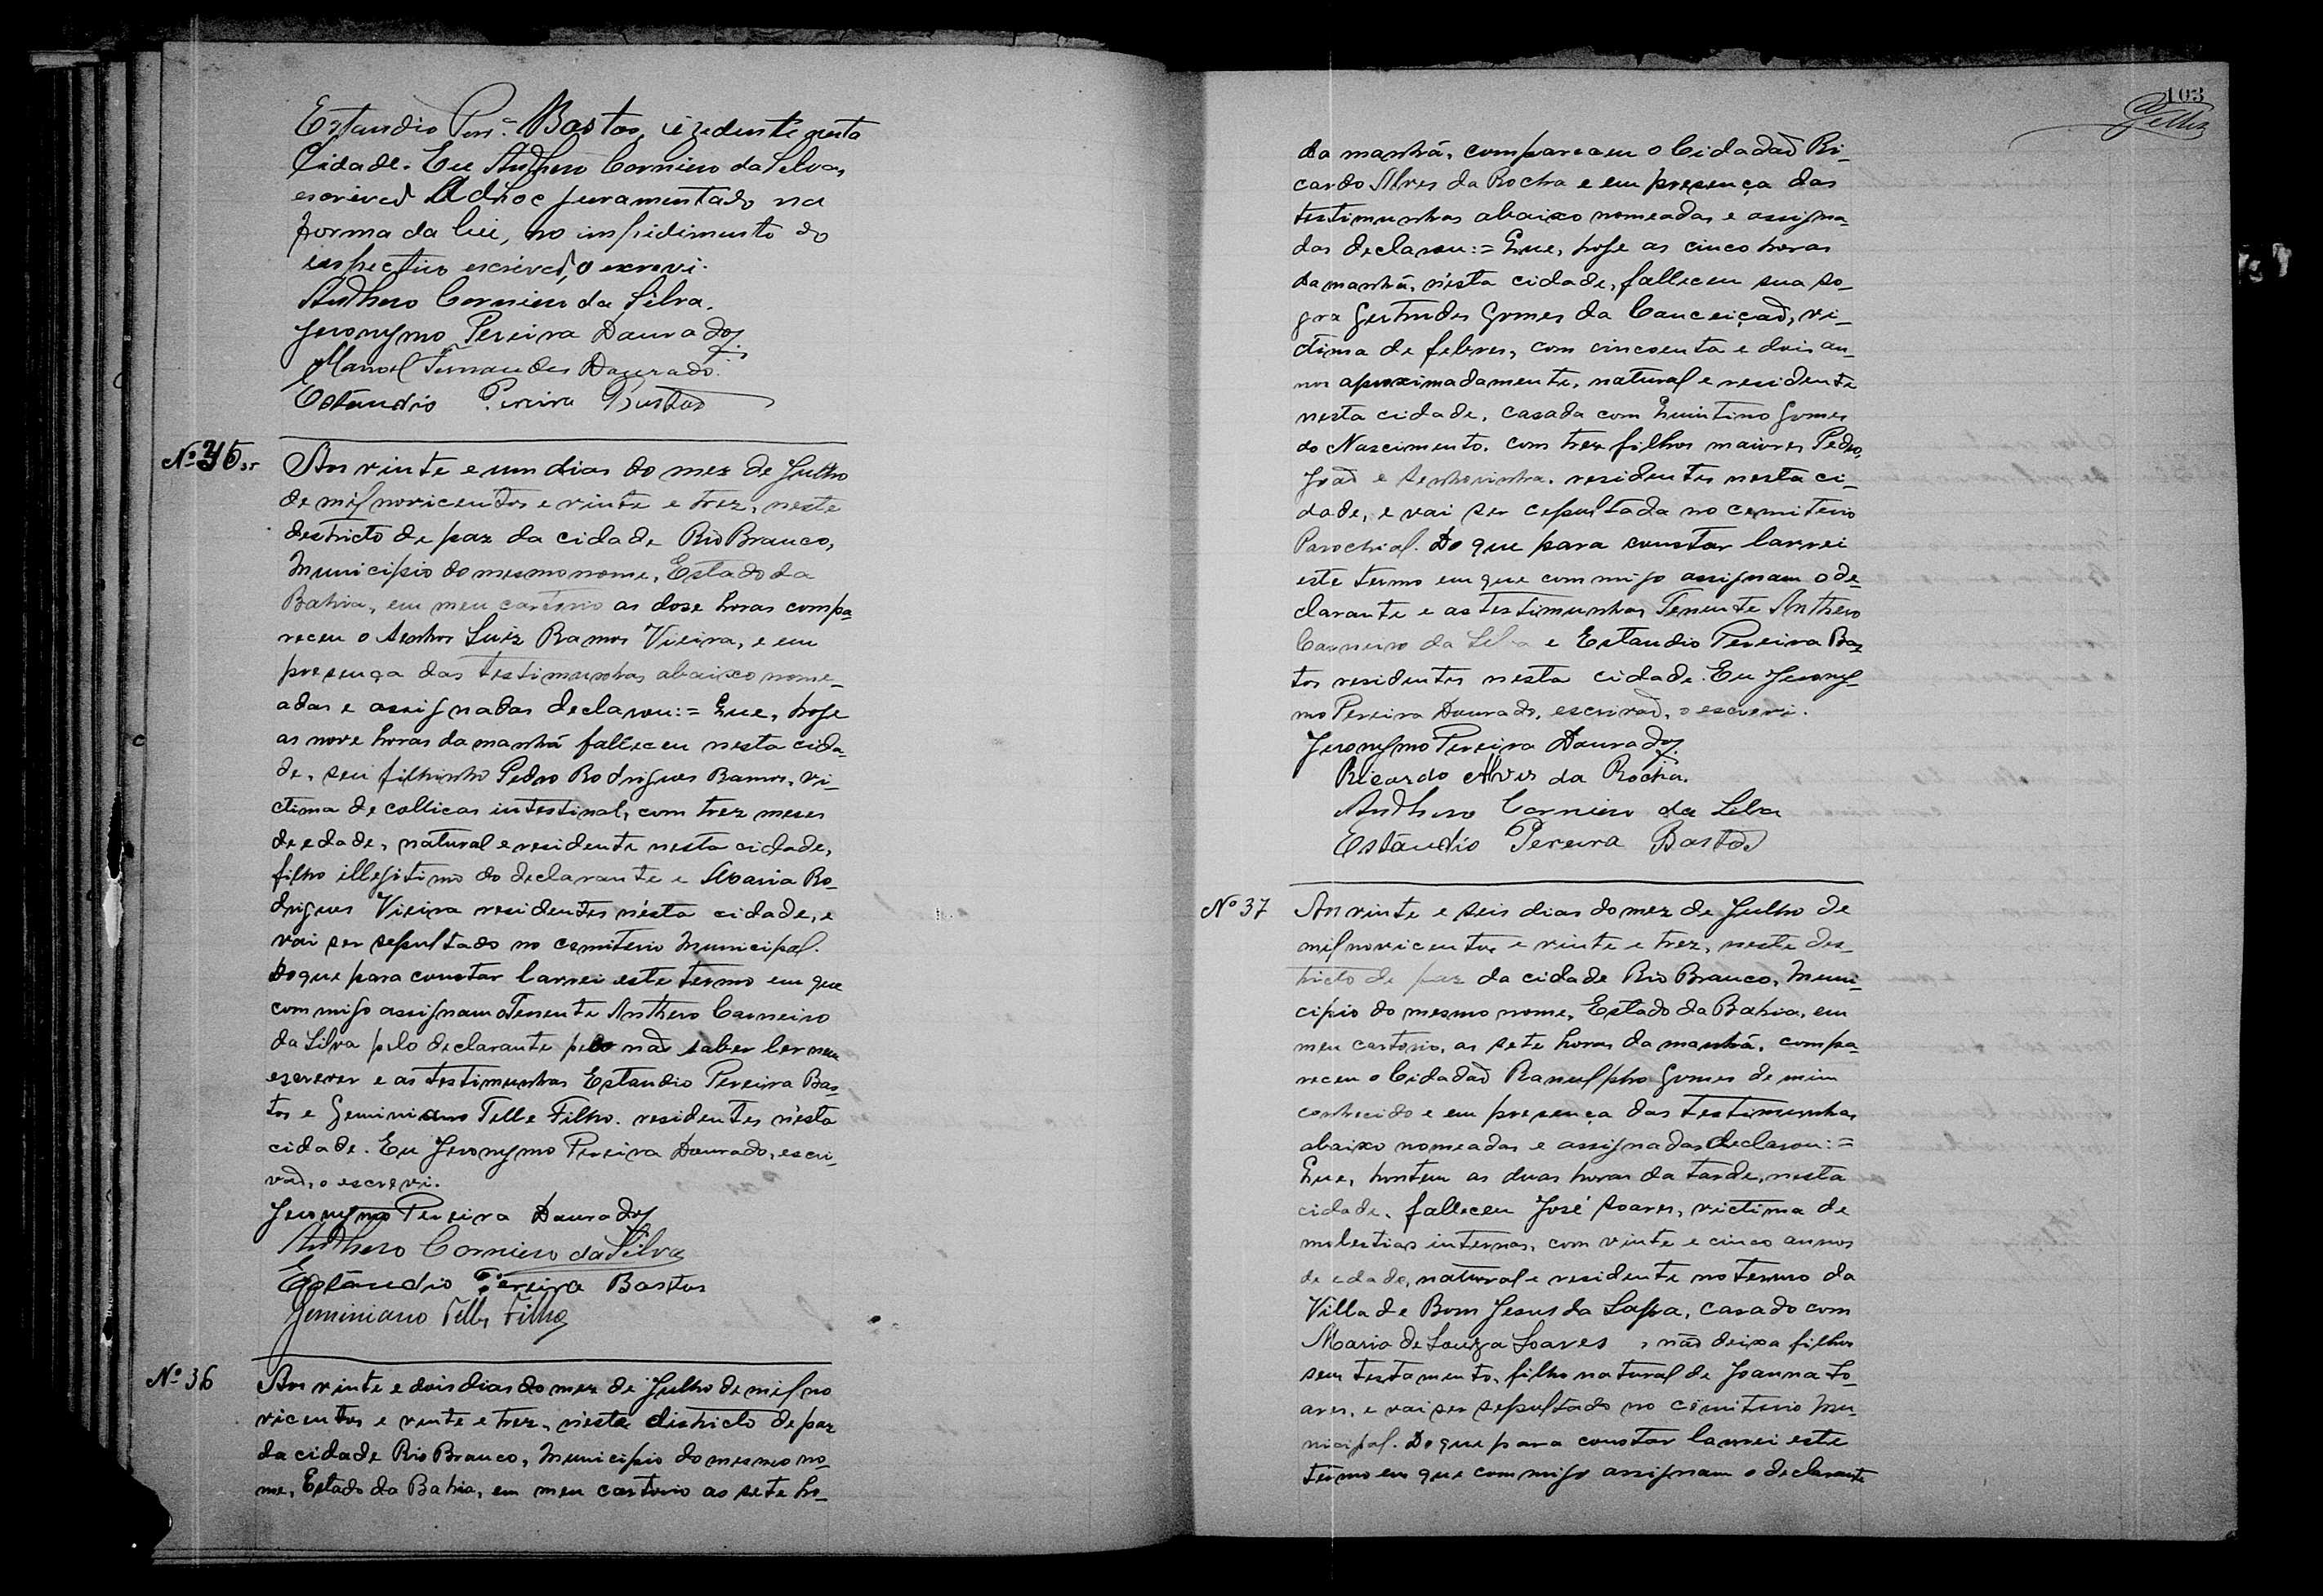 Estaudio Perª Bastos, rezedente nesta
Cidade. Eu Anthero Carneiro da Silva,
escrivad Adhoc juramentado na
forma da lei, no impidimento do
respectivo escrivad, o escrevi.
Anthero Carneiro da Silva.
Jeronymo Pereira Dourado
Manoel Fernandes Dourado.
Estaudio Pereira Bastos
Nº 35
Aos vinte e um dias do mez de Julho
de mil novicentos e vinte e trez, neste
destricto de paz da cidade Rio Branco,
Municipio do mesmo nome, Estado da
Bahia, em meu cartorio as dose horas compa-
receu o senhor Luiz Ramos Vieira, e em
presença das testimunhas abaixo nome-
adas e assignadas declarou:= Que, hoje
as nove horas da manhã falleceu nesta cida-
de, seu filhinho Pedro Rodrigues Ramos, vi-
ctima de collicas intestinal, com trez meses
de edade, natural e residente nesta cidade,
filho illegitimo do declarante e Maria Ro-
drigues Vieira residentes nésta cidade, e
vai ser sepultado no cemiterio Municipal.
Do que para constar larvei este termo em que
com migo assignam o Tenente Anthero Carneiro
da Silva pelo declarante pelo não saber ler nem
escrever e as testimunhas Estaudio Pereira Bas-
tos e Geminiano Telle Filho. residentes nésta
cidade. Eu Jeronymo Pereira Dourado, escri-
vad, o escrevi.
Jeronymo Pereira Dourado
Anthero Carneiro da Silva
Estaudio Pereira Bastos
Geminiano Telles Filho
Nº 36
Aos vinte e dois dias do mez de Julho de mil no-
vicentos e vinte e trez, néste districto de paz
da cidade Rio Branco, Municipio do mesmo no-
me, Estado da Bahia, em meu cartorio as sete ho-
103
da manhã, compareceu o Cidadad Ri-
cardo Alves da Rocha e em presença das
testimunhas abaixo nomeadas e assigna-
das declarou:= Que, hoje as cinco horas
da manhã, nésta cidade, falleceu sua so-
gra Gertrudes Gomes da Conceiçad, vi-
ctima de febres, com cincoenta e dois an-
nos aproximadamente, natural e residente
nesta cidade, casada com Quintino Gomes
do Nascimento. com trez filhos maiores Pedro,
Joad e Senhorinha. residentes nesta ci-
dade, e vai ser cepultada no cemiterio
Parochial. Do que para constar larvei
este termo em que com migo assignam o de-
clarante e as testimunhas Tenente Anthero
Carneiro da Silva e Estaudio Pereira Bas-
tos residentes nesta cidade. Eu Jerony-
mo Pereira Dourado, escrivad, o escrevi.
Jeronymo Pereira Dourado
Ricardo Alves da Rocha.
Anthero Carneiro da Silva
Estaudio Pereira Bastos
Nº 37
Aos vinte e seis dias do mez de Julho de
mil novicentos e vinte e trez, neste des-
tricto de paz da cidade Rio Branco, Muni-
cipio do mesmo nome, Estado da Bahia, em
meu cartorio, as sete horas da manhã, compa-
receu o Cidadad Ranulpho Gomes de mim
conhecido e em presença das testimunhas
abaixo nomeadas e assignadas declarou:=
Que, hontem as duas horas da tarde, nesta
cidade, falleceu José Soares, victima de
molestias internas, com vinte e cinco annos
de edade, natural e residente no termo da
Villa de Bom Jesus da Lapa, casado com
Maria de Souza Soares , não deixa filhos
sem testamento, filho natural de Joanna So-
ares, e vai ser sepultado no cimiterio Mu-
nicipal. Do que para constar larvei este
termo em que com migo assignam o declarante